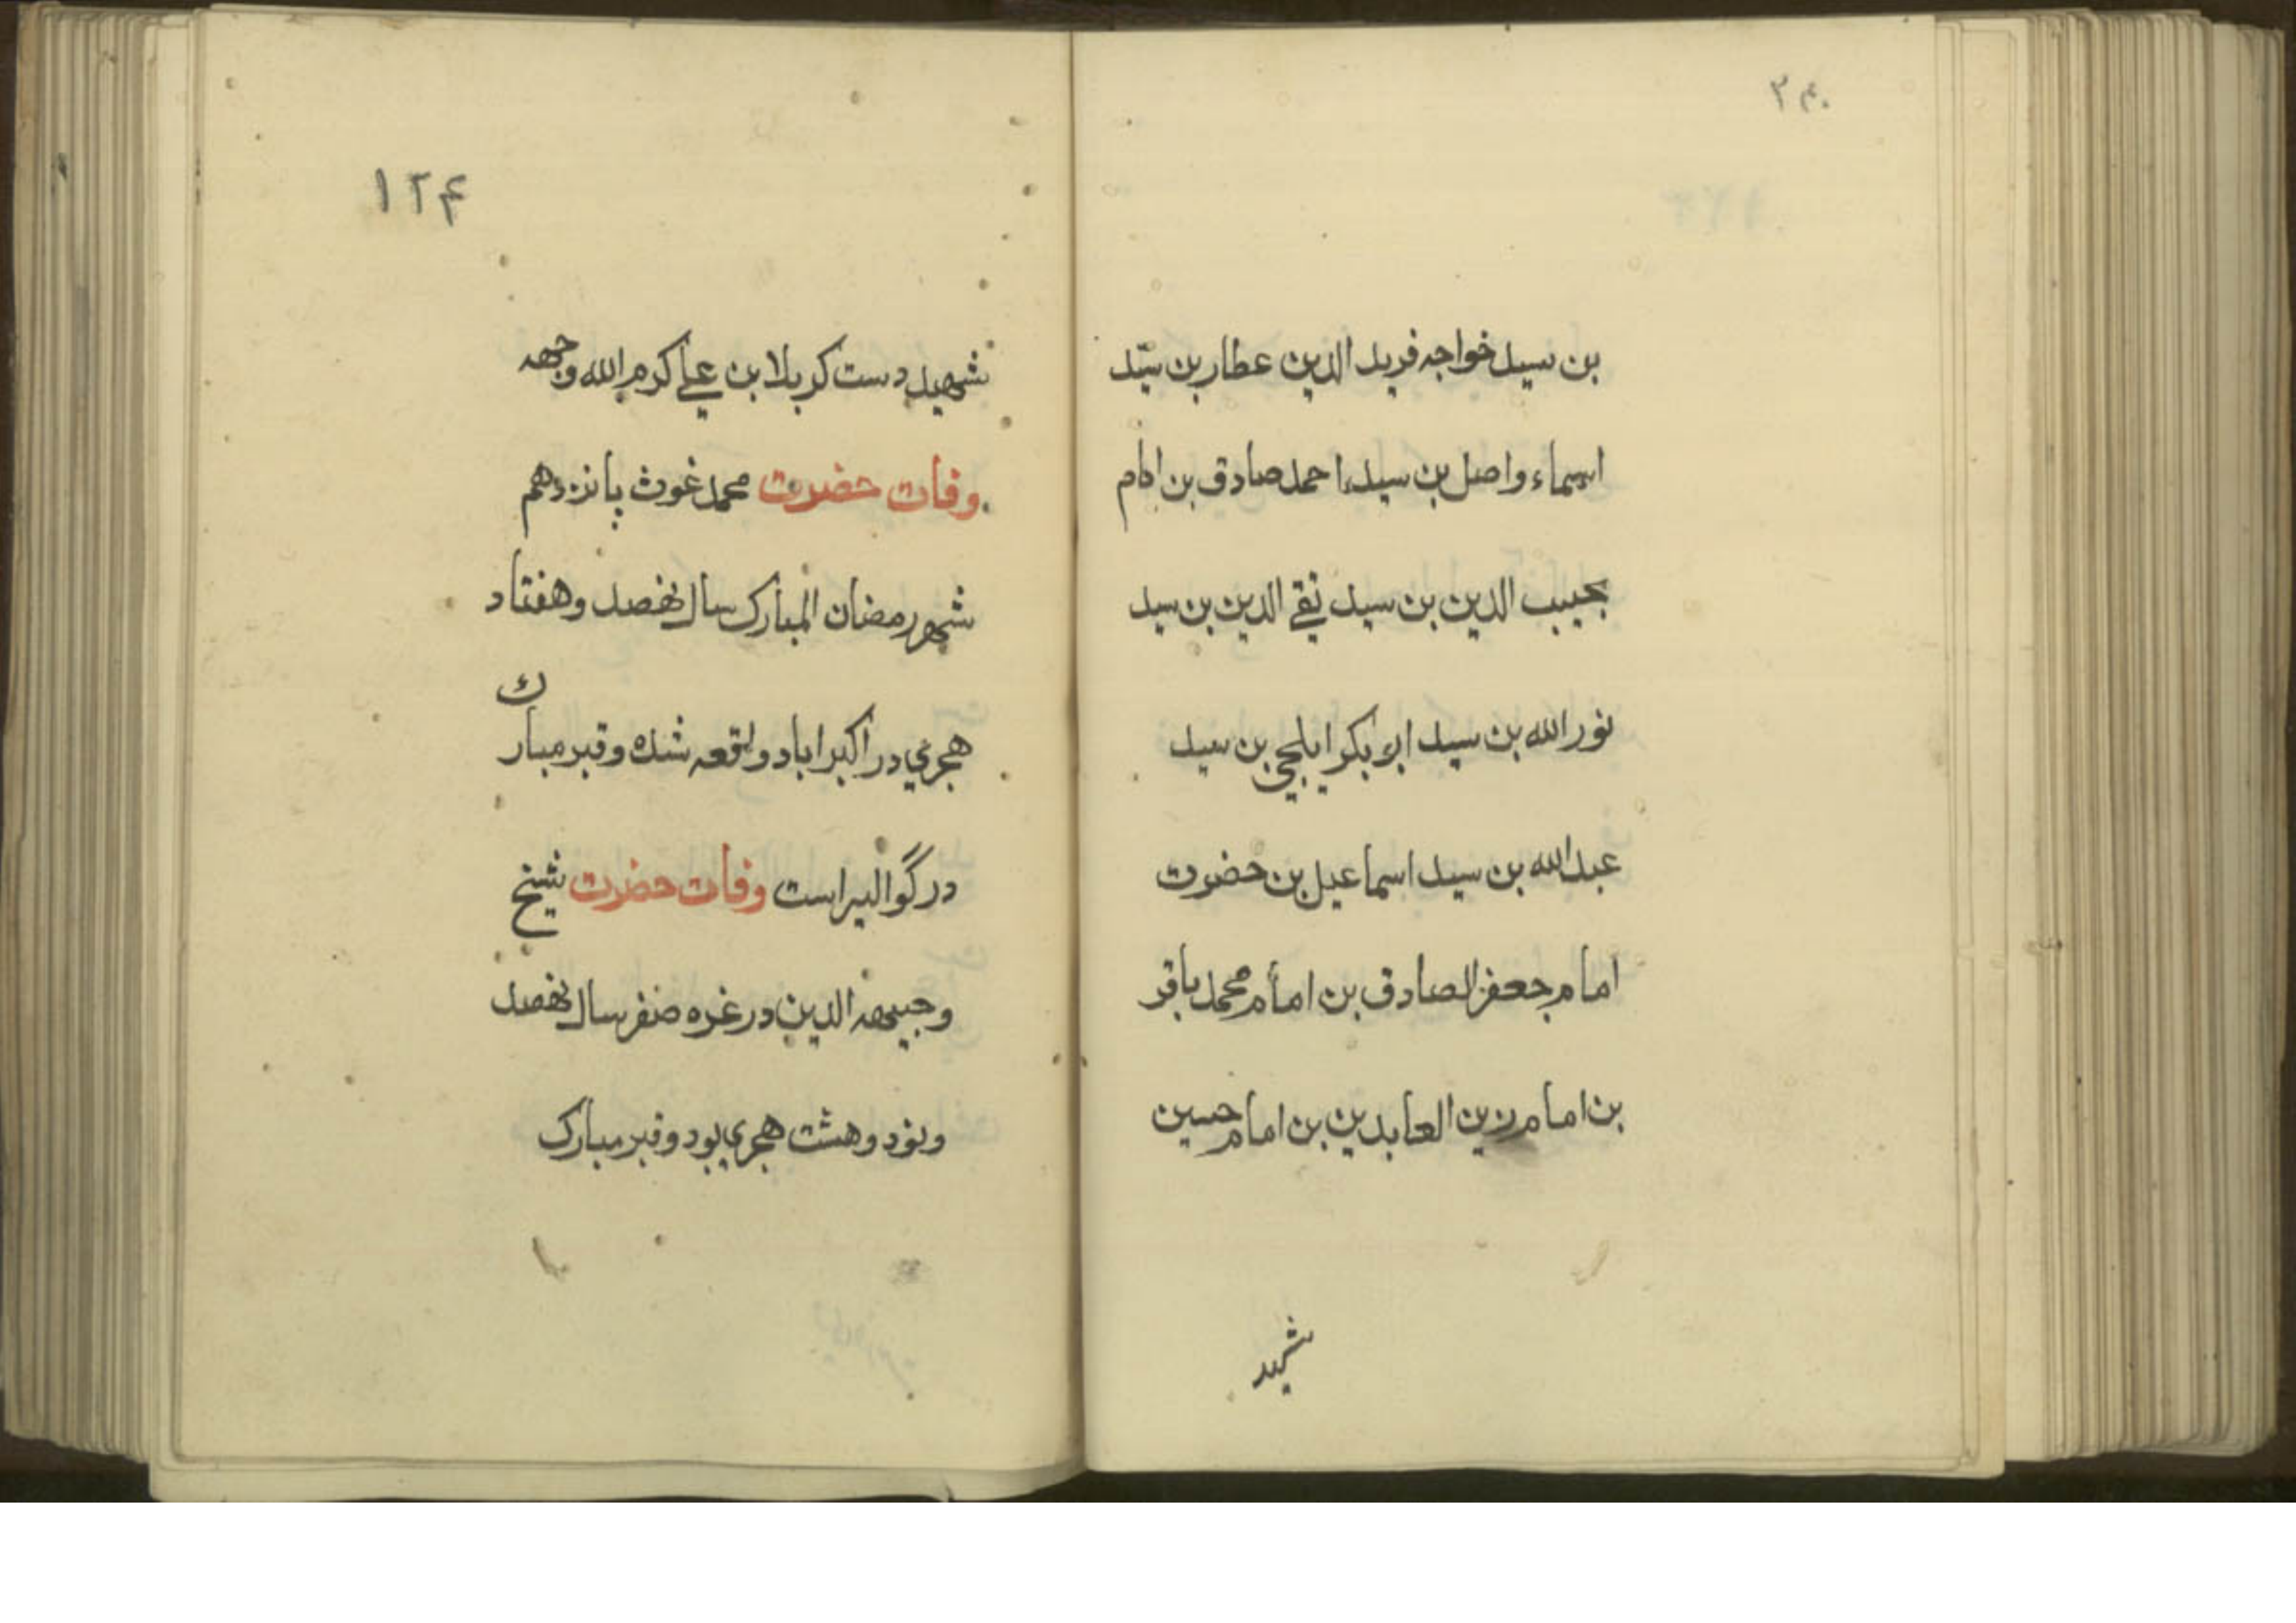 ۲۴۰
بن سید خواجه فرید الدین عطار بن سیّد
اسماء واصل بن سید احمد صادق بن امام
نجیب الدین بن سید نقے الدین بن سید
نور الله بن سید ابو بکر ایلچی بن سید
عبد الله بن سید اسماعیل بن حضرت
امام جعفر الصادق بن امام محمد باقر
بن امام زین العابدین بن امام حسین
شهید
۱۲۴
شهید دست کربلا بن علے کرم الله وجهه
وفات حضرت محمد غوث پانزدهم
شهر رمضان المبارک سال نهصد و هفتاد
هجری در اکبراباد واقعه شده و قبر مبارک
در گوالیر است وفات حضرت شیخ
وجیهه الدین در غره صفر سال نهصد
ونود و هشت هجری بود و قبر مبارک